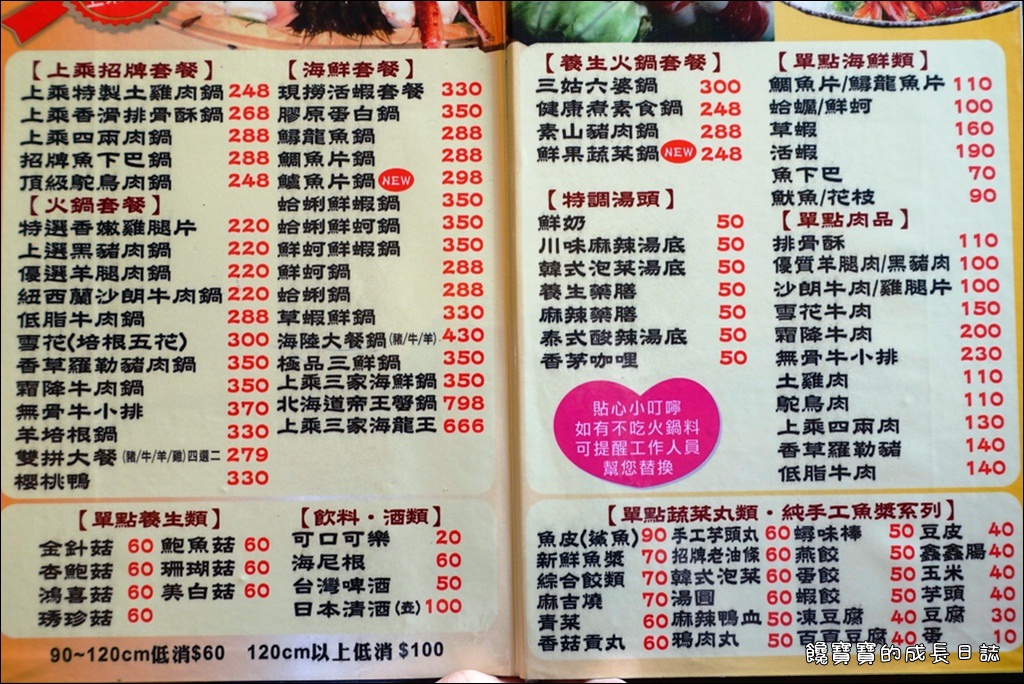 【上乘招牌套餐】
上乘特製土雞肉鍋 248
上乘香滑排骨酥鍋 268
上乘四兩肉鍋 288
招牌魚下巴鍋 288
頂級鴕鳥肉鍋 248
【火鍋套餐】
特選香嫩雞腿片 220
上選黑豬肉鍋 220
優選羊腿肉鍋 220
紐西蘭沙朗牛肉鍋 220
低脂牛肉鍋 288
雪花(培根五花) 300
香草羅勒豬肉鍋 350
霜降牛肉鍋 350
無骨牛小排 370
羊培根鍋 330
雙拼大餐(豬/牛/羊/雞)四選二 279
櫻桃鴨 330
【海鮮套餐】
現撈活蝦套餐 330
膠原蛋白鍋 350
鱘龍魚鍋 288
鯛魚片鍋 288
鱸魚片鍋 NEW 298
蛤蜊鮮蝦鍋 350
蛤蜊鮮蚵鍋 350
鮮蚵鮮蝦鍋 350
鮮蚵鍋 288
蛤蜊鍋 288
草蝦鮮鍋 330
海陸大餐鍋(豬/牛/羊) 430
極品三鮮鍋 350
上乘三家海鮮鍋 350
北海道帝王蟹鍋 798
上乘三家海龍王 666
【單點養生類】
金針菇 60 鮑魚菇 60
杏鮑菇 60 珊瑚菇 60
鴻喜菇 60 美白菇 60
琇珍菇 60
【飲料・酒類】
可口可樂 20
海尼根 60
台灣啤酒 50
日本清酒(壺) 100
90~120cm低消$60 120cm以上低消$100
【養生火鍋套餐】
三姑六婆鍋 300
健康煮素食鍋 248
素山豬肉鍋 288
鮮果蔬菜鍋 NEW 248
【特調湯頭】
鮮奶 50
川味麻辣湯底 50
韓式泡菜湯底 50
養生藥膳 50
麻辣藥膳 50
泰式酸辣湯底 50
香茅咖哩 50
貼心小叮嚀
如有不吃火鍋料
可提醒工作人員
幫您替換
【單點海鮮類】
鯛魚片/鱘龍魚片 110
蛤蠣/鮮蚵 100
草蝦 160
活蝦 190
魚下巴 70
魷魚/花枝 90
【單點肉品】
排骨酥 110
優質羊腿肉/黑豬肉 100
沙朗牛肉/雞腿片 100
雪花牛肉 150
霜降牛肉 200
無骨牛小排 230
土雞肉 110
鴕鳥肉 110
上乘四兩肉 130
香草羅勒豬 140
低脂牛肉 140
【單點蔬菜丸類・純手工魚漿系列】
魚皮(鯎魚) 90 手工芋頭丸 60 蟳味棒 50 豆皮 40
新鮮魚漿 70 招牌老油條 60 燕餃 50 鑫鑫腸 40
綜合餃類 70 韓式泡菜 60 蛋餃 50 玉米 40
麻吉燒 70 湯圓 60 蝦餃 50 芋頭 40
青菜 60 麻辣鴨血 50 凍豆腐 40 豆腐 30
香菇貢丸 60 鴉肉丸 50 百頁豆腐 40 蛋 10
饞寶寶的成長日誌